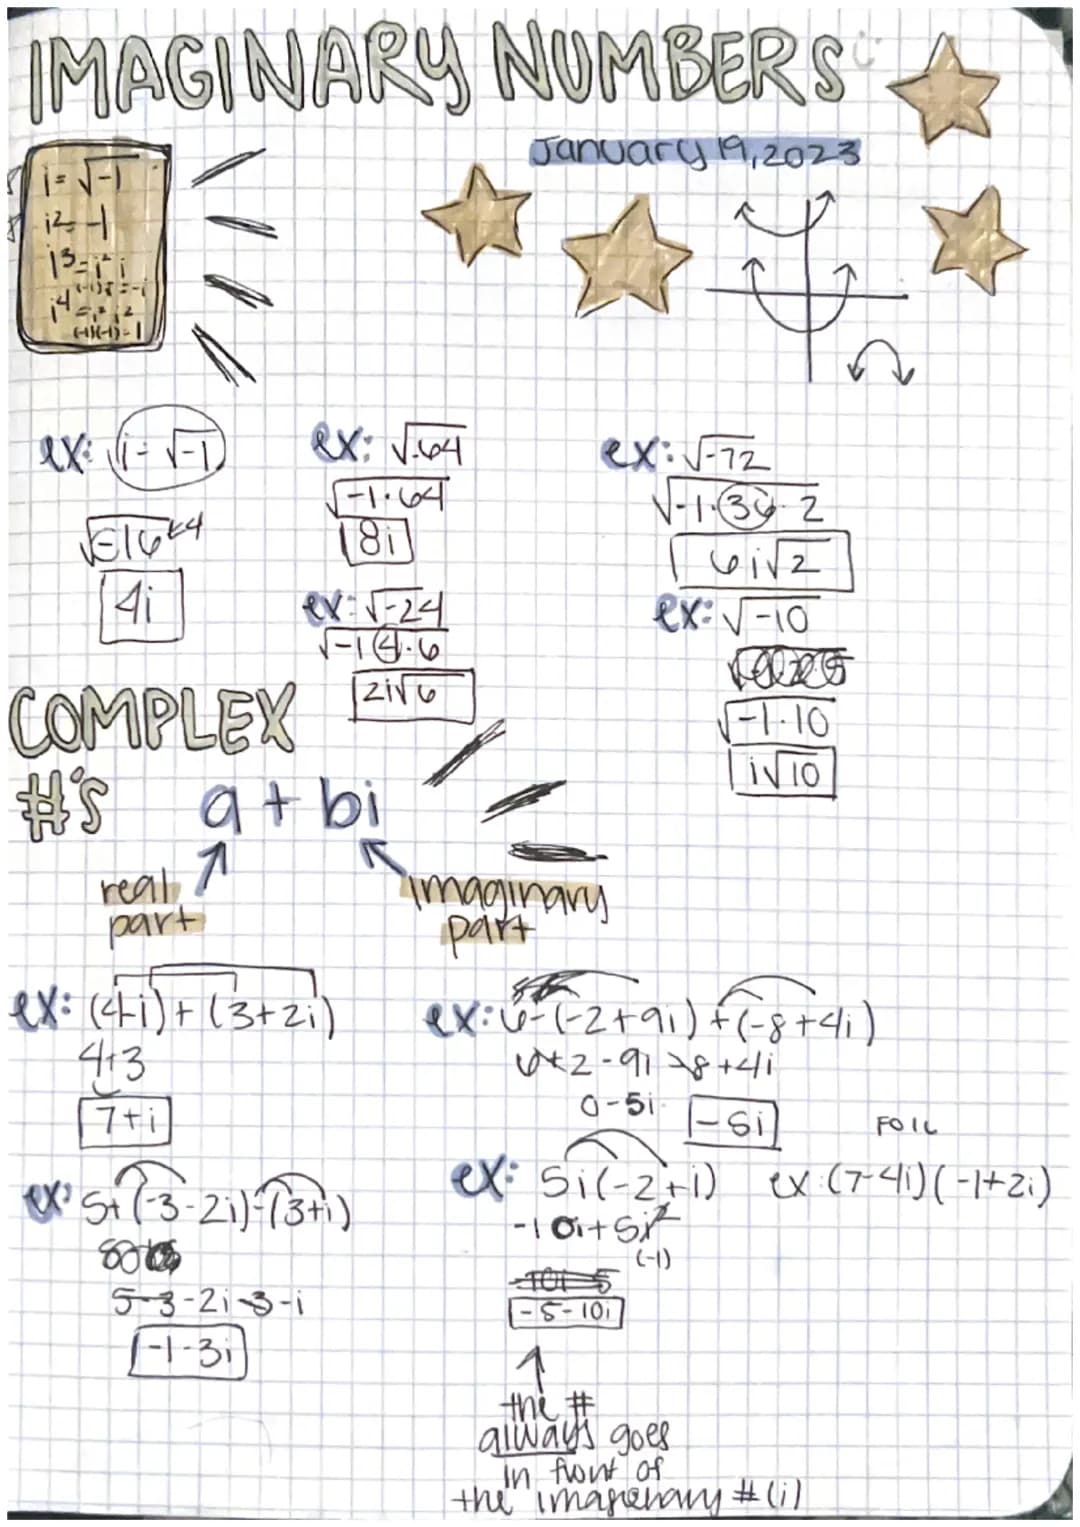 IMAGINARY NUMBERS
January 19, 2023
i = √-1
i² = -1
i³ = i² · i
(-1)i = -i
i⁴ = i² · i²
(-1)(-1) = 1
ex: i = √-1
√-16 4
4i
ex: √-64
√-1·64
8i
ex: √-24
√-1·4·6
2i√6
ex: √-72
√-1·36·2
6i√2
ex: √-10
√-1·10
i√10
COMPLEX
#'S
a + bi
real
part
imaginary
part
ex: (4-i) + (3+2i)
4+3
7+i
ex: 6-(-2+9i) + (-8+4i)
6+2-9i-8+4i
0-5i
-5i
FOIL
ex: 5+(-3-2i)-(3+i)
5-3-2i-3-i
-1-3i
ex: 5i(-2+i)
-10i+5i²
(-1)
-10i-5
-5-10i
ex: (7-4i)(-1+2i)
the #
always goes
in front of
the imaginary # (i)